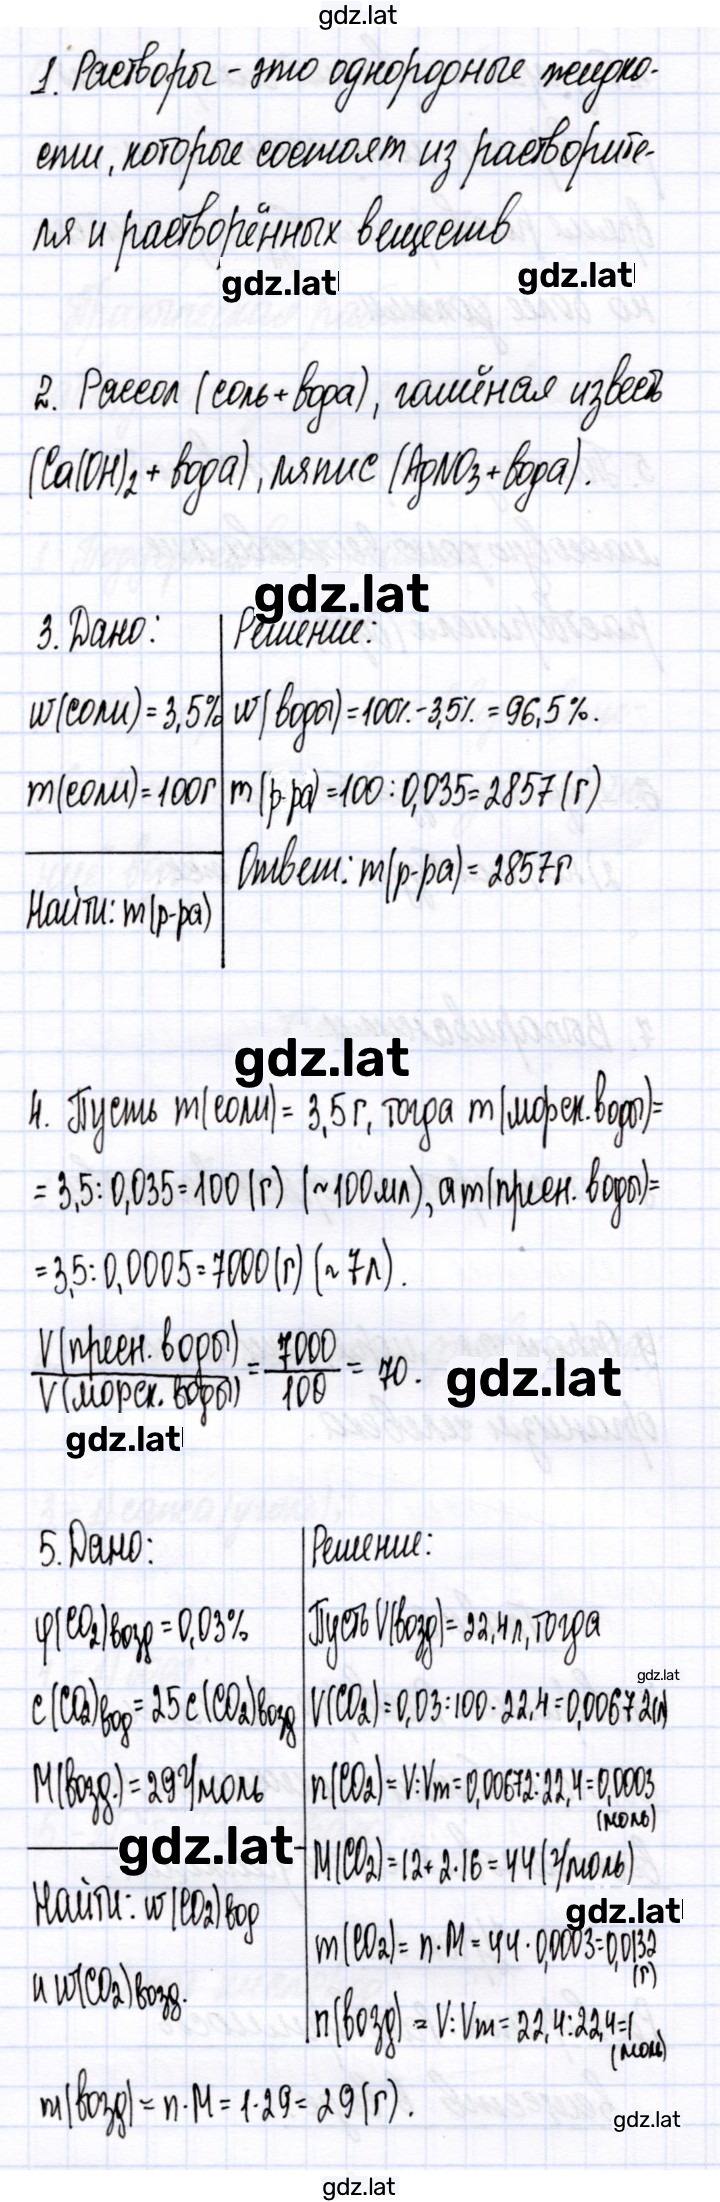 gdz.lat
1. Растворы - это однородные жидко-
сти, которые состоят из растворите-
ля и растворённых веществ
gdz.lat
gdz.lat
2. Рассол (соль+вода), гашёная известь
(Ca(OH)2 + вода), ляпис (AgNO3+вода).
gdz.lat
3. Дано:
w(соли) = 3,5%
m(соли) = 100г
Найти: m(р-ра)
Решение:
w(воды) = 100% - 3,5% = 96,5%.
m(р-ра) = 100 : 0,035 = 2857 (г)
Ответ: m(р-ра) = 2857г
gdz.lat
4. Пусть m(соли) = 3,5 г, тогда m(морск. воды)=
= 3,5 : 0,035 = 100 (г) (~100мл), а m(пресн. воды)=
= 3,5 : 0,0005 = 7000 (г) (~ 7л).
V(пресн. воды)/V(морск. воды) = 7000/100 = 70.
gdz.lat
gdz.lat
5. Дано:
φ(CO2)возд = 0,03%
c(CO2)вод = 25 c(CO2)возд
M(возд.) = 29 г/моль
gdz.lat
Найти: w(CO2)вод
и w(CO2)возд.
Решение:
Пусть V(возд) = 22,4 л, тогда
gdz.lat
V(CO2) = 0,03 : 100 · 22,4 = 0,00672(л)
n(CO2) = V : Vm = 0,00672 : 22,4 = 0,0003
(моль)
M(CO2) = 12 + 2·16 = 44 (г/моль)
gdz.lat
m(CO2) = n · M = 44 · 0,0003 = 0,0132
(г)
n(возд) = V : Vm = 22,4 : 22,4 = 1
(моль)
m(возд) = n · M = 1 · 29 = 29 (г).
gdz.lat
gdz.lat